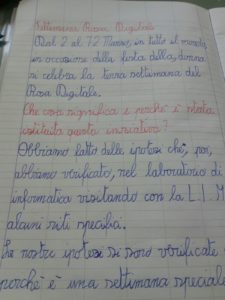 Settimana Rosa Digitale
Dal 2 al 12 Marzo, in tutto il mondo,
in occasione della festa della donna
si celebra la terza settimana del
Rosa Digitale.
Che cosa significa e perché è stata
istituita questa iniziativa?
Abbiamo fatto delle ipotesi che, poi,
abbiamo verificato, nel laboratorio di
informatica visitando con la L.I.M
alcuni siti specifici.
Le nostre ipotesi si sono verificate
perché è una settimana speciale